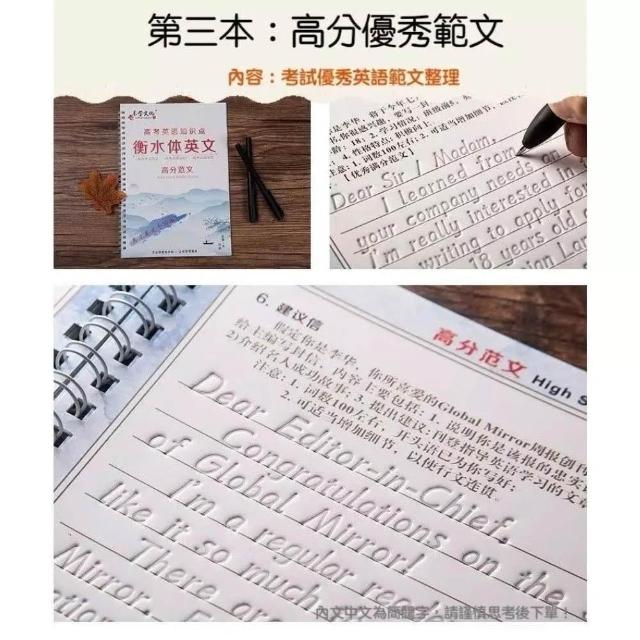 第三本：高分優秀範文
內容：考試優秀英語範文整理
高考英语知识点
衡水体英文
高分范文
【优秀满分范文】
Dear Sir / Madam,
I learned from
your company needs an
I'm really interested in
writing to apply for
18 years old
6. 建议信
高分范文 High S
假定你是李华，你所喜爱的Global Mirror周报创刊
给主编写封信，内容主要包括：1. 说明你是该报的忠实
2)介绍名人成功故事；3. 提出建议：刊登指导英语学习的文章
注意：1. 词数100左右，开头语已为你写好；
2. 可适当增加细节，以使行文连贯。
Dear Editor-in-Chief,
Congratulations on the
of Global Mirror!
I'm a regular rea
like it so much
There are
Mirror.
內文中文為簡體字，請謹慎思考後下單！